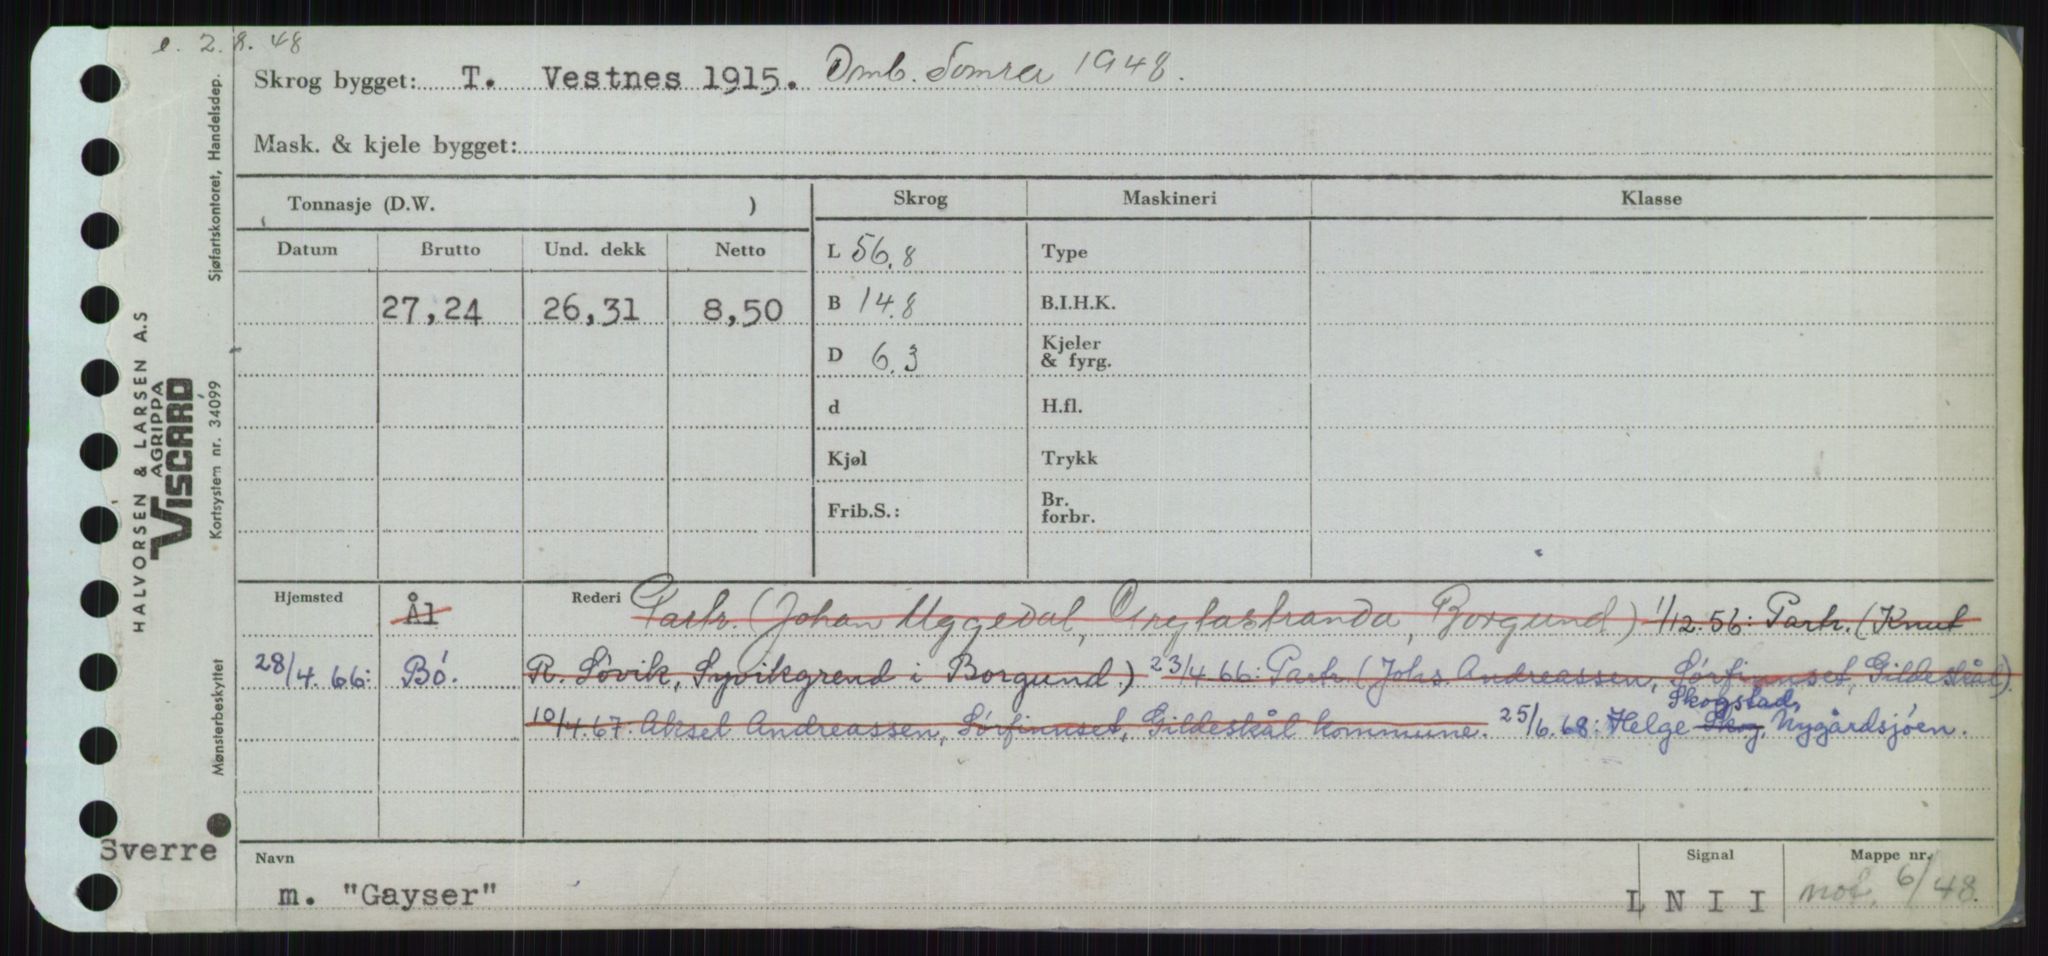 e. 2.8.48
Skrog bygget: T. Vestnes 1915. Omb. Tomra 1948.
Mask. & kjele bygget:
Tonnasje (D.W. )
Skrog
Maskineri
Klasse
Datum
Brutto
Und. dekk
Netto
L 56,8
Type
27,24
26,31
8,50
B 14.8
B.I.H.K.
D 6.3
Kjeler
& fyrg.
d
H.fl.
Kjøl
Trykk
Frib.S.:
Br.
forbr.
Hjemsted
Ål
Rederi
Partr. (Johan Uggedal, Gregtastranda, Borgund) 1/12.56: Partr. (Knut
28/4.66: Bö.
R. Sövik, Syvikgrend i Borgund.) 23/4 66: Partr. (Johs. Andreassen, Sørfinnset, Gildeskål).
Skogstad,
10/4.67: Aksel Andreassen, Sørfinnset, Gildeskål kommune. 25/6.68: Helge Skog, Nygårdsjöen.
Sverre
Navn
m. "Gayser"
Signal
L N I I
Mappe nr.
not. 6/48.
HALVORSEN & LARSEN A.S
AGRIPPA
VISCARD
Sjøfartskontoret, Handelsdep.
Kortsystem nr. 34099
Mønsterbeskyttet